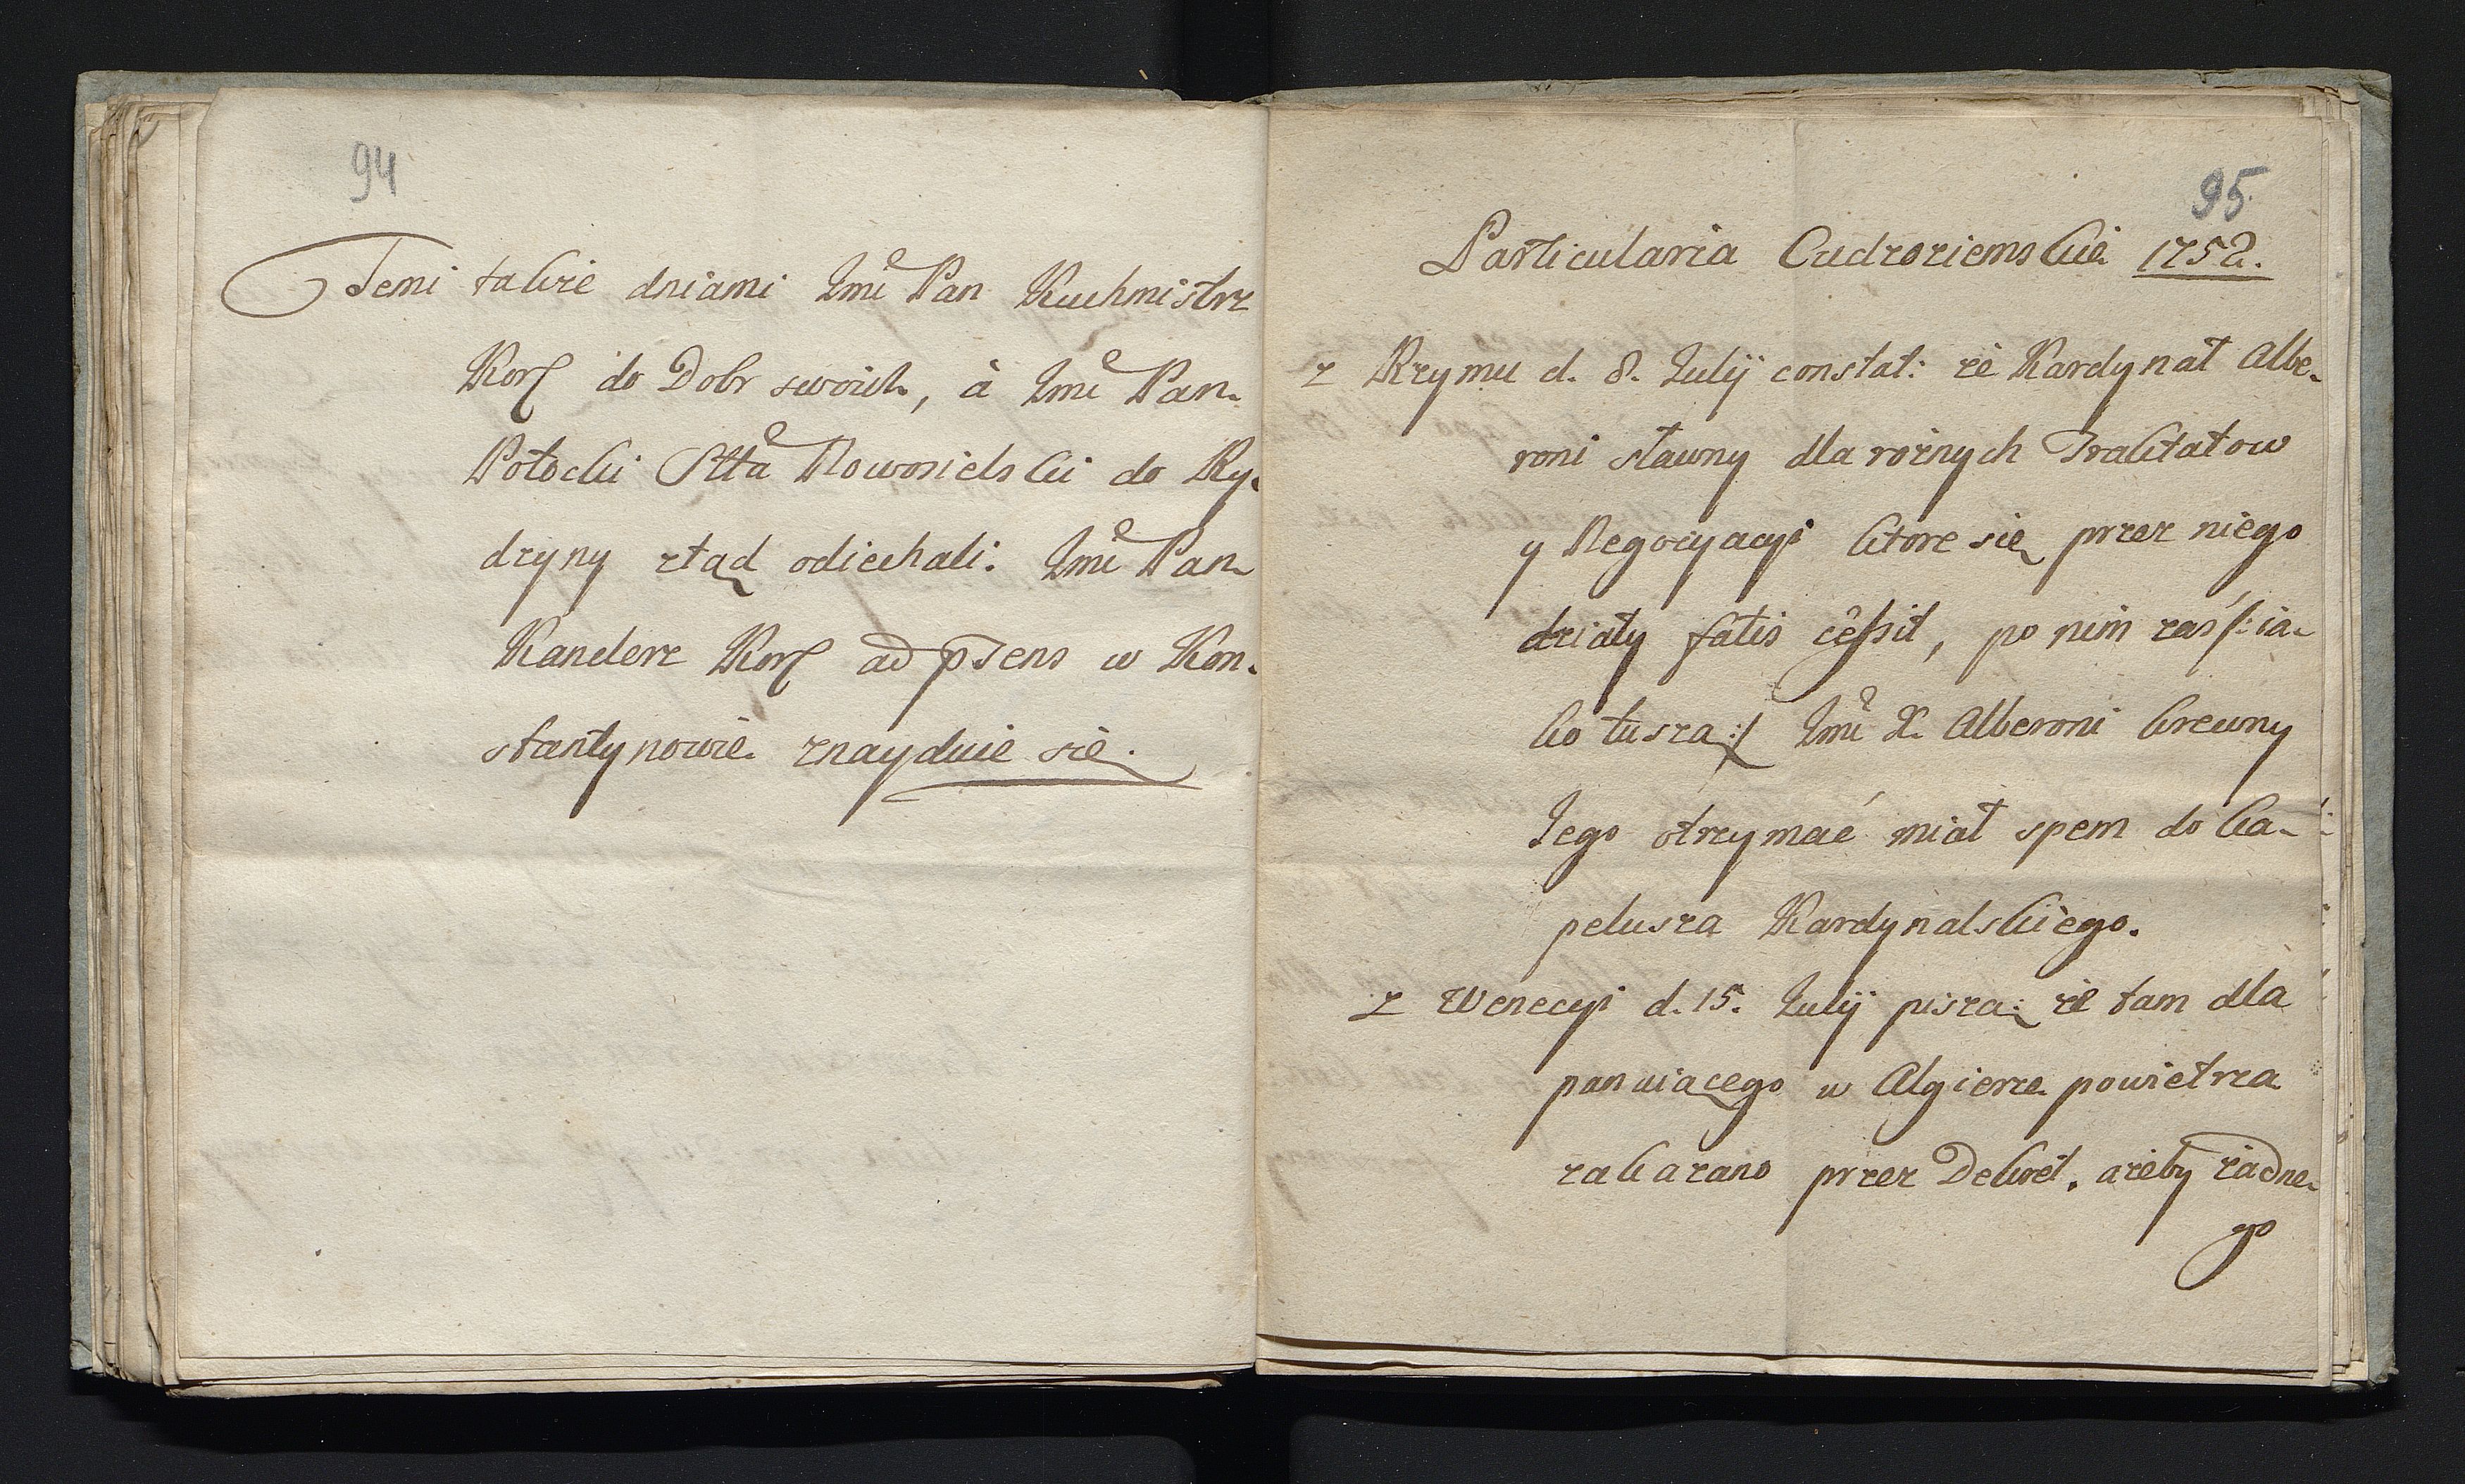 94
Temi takze dniami Jmć Pan Kuchmistrz
Kor. do Dobr swoich, à Jmć Pan
Potocki Sttã Nowosielski do Ky-
dryny ztąd odiechali: Jmć Pan
Kanclerz Kor. ad pſens w Kon-
stantynowie znayduie się.
95.
Particularia Cudzoziemskie 1752.
z Rzymu d. 8. Julÿ constat: że Kardynał Albe-
roni sławny dla rożnych Traktatow
y Negocyacyi ktore się przez niego
działy fatis ceſsit, po nim zaś /: ia-
ko tuszą :/ Jmć X. Alberoni krewny
Jego otrzymać miał spem do ka-
pelusza Kardynalskiego.
z Wenecyi d. 15. Julÿ piszą: że tam dla
panuiącego w Algierze powietrza
zakazano przez Dekret, ażeby żadne-
go